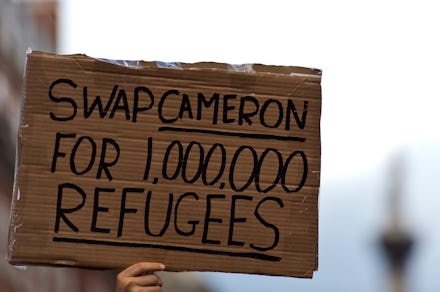 SWAP CAMERON
FOR 1,000,000
REFUGEES